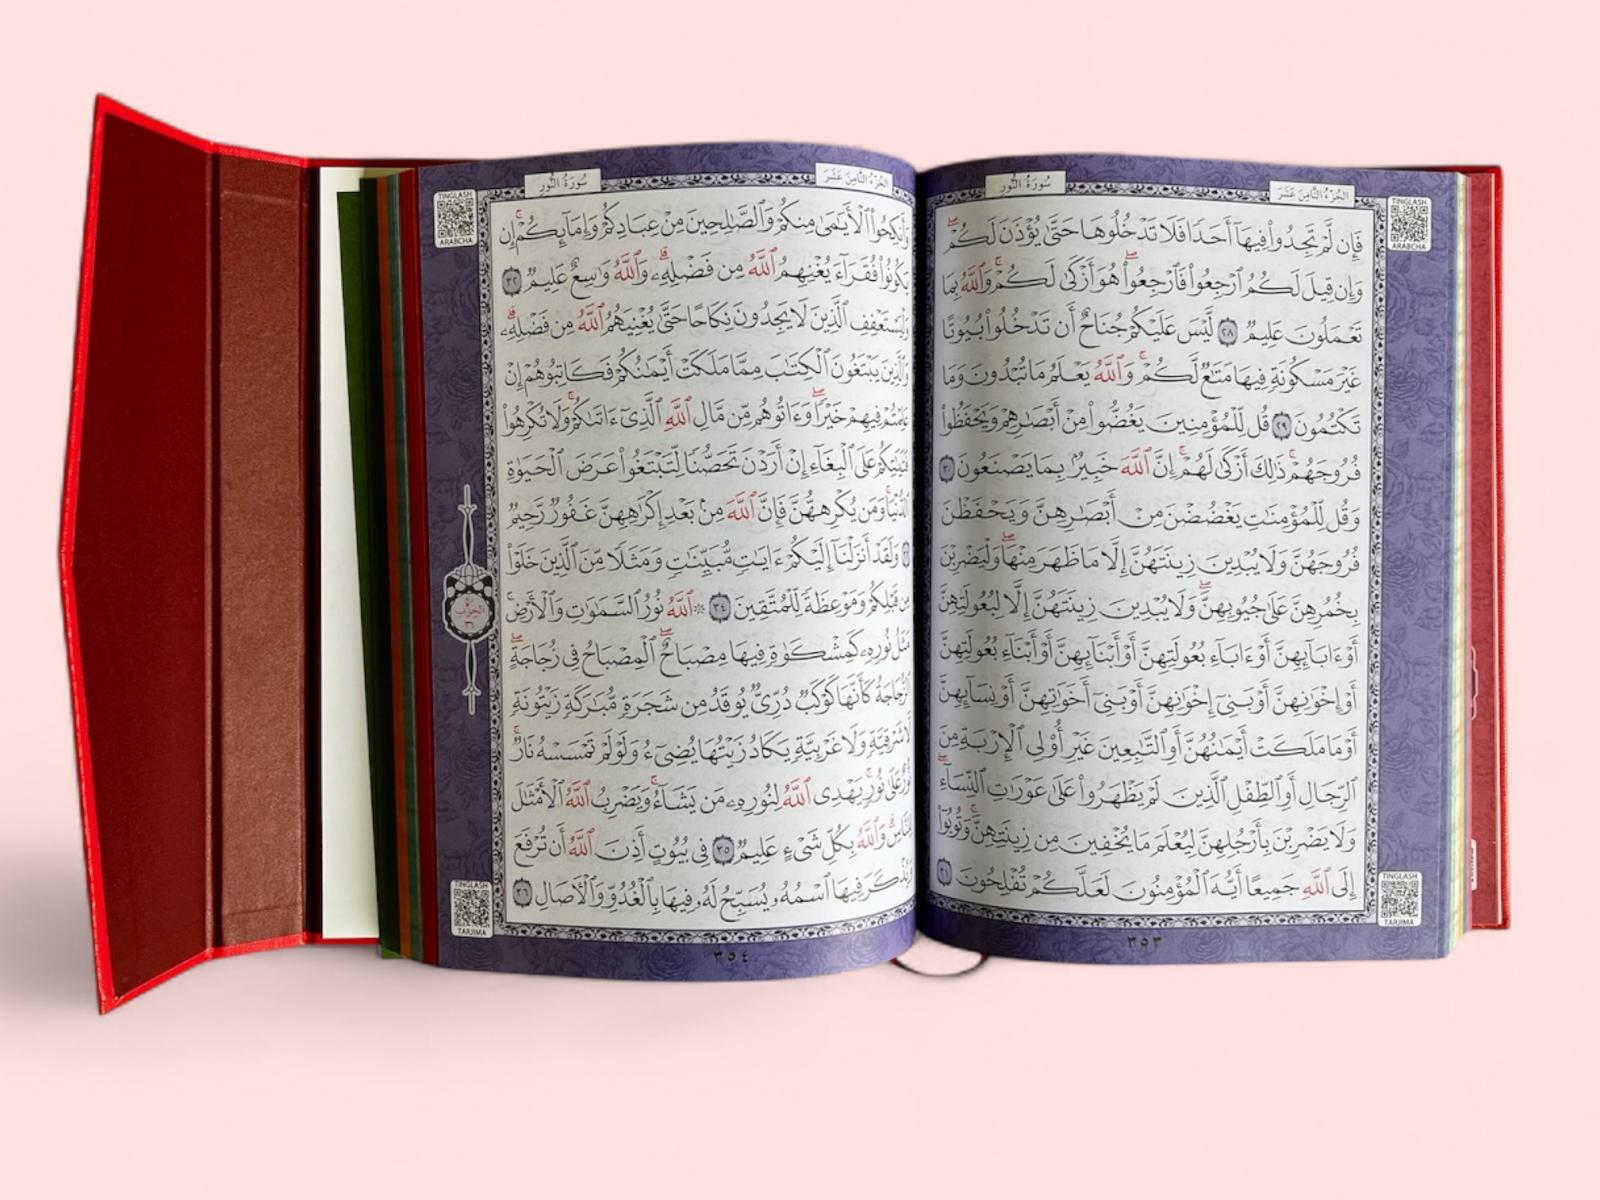 سُورَةُ النُّورِ
الجُزْءُ الثَّامِنَ عَشَرَ
TINGLASH
ARABCHA
فَإِن لَّمْ تَجِدُوا۟ فِيهَآ أَحَدًا فَلَا تَدْخُلُوهَا حَتَّىٰ يُؤْذَنَ لَكُمْ ۖ
وَإِن قِيلَ لَكُمُ ٱرْجِعُوا۟ فَٱرْجِعُوا۟ ۖ هُوَ أَزْكَىٰ لَكُمْ ۚ وَٱللَّهُ بِمَا
تَعْمَلُونَ عَلِيمٌ ٢٨ لَّيْسَ عَلَيْكُمْ جُنَاحٌ أَن تَدْخُلُوا۟ بُيُوتًا
غَيْرَ مَسْكُونَةٍ فِيهَا مَتَـٰعٌ لَّكُمْ ۚ وَٱللَّهُ يَعْلَمُ مَا تُبْدُونَ وَمَا
تَكْتُمُونَ ٢٩ قُل لِّلْمُؤْمِنِينَ يَغُضُّوا۟ مِنْ أَبْصَـٰرِهِمْ وَيَحْفَظُوا۟
فُرُوجَهُمْ ۚ ذَٰلِكَ أَزْكَىٰ لَهُمْ ۗ إِنَّ ٱللَّهَ خَبِيرٌۢ بِمَا يَصْنَعُونَ ٣٠
وَقُل لِّلْمُؤْمِنَـٰتِ يَغْضُضْنَ مِنْ أَبْصَـٰرِهِنَّ وَيَحْفَظْنَ
فُرُوجَهُنَّ وَلَا يُبْدِينَ زِينَتَهُنَّ إِلَّا مَا ظَهَرَ مِنْهَا ۖ وَلْيَضْرِبْنَ
بِخُمُرِهِنَّ عَلَىٰ جُيُوبِهِنَّ ۖ وَلَا يُبْدِينَ زِينَتَهُنَّ إِلَّا لِبُعُولَتِهِنَّ
أَوْ ءَابَآئِهِنَّ أَوْ ءَابَآءِ بُعُولَتِهِنَّ أَوْ أَبْنَآئِهِنَّ أَوْ أَبْنَآءِ بُعُولَتِهِنَّ
أَوْ إِخْوَٰنِهِنَّ أَوْ بَنِىٓ إِخْوَٰنِهِنَّ أَوْ بَنِىٓ أَخَوَٰتِهِنَّ أَوْ نِسَآئِهِنَّ
أَوْ مَا مَلَكَتْ أَيْمَـٰنُهُنَّ أَوِ ٱلتَّـٰبِعِينَ غَيْرِ أُو۟لِى ٱلْإِرْبَةِ مِنَ
ٱلرِّجَالِ أَوِ ٱلطِّفْلِ ٱلَّذِينَ لَمْ يَظْهَرُوا۟ عَلَىٰ عَوْرَٰتِ ٱلنِّسَآءِ ۖ
وَلَا يَضْرِبْنَ بِأَرْجُلِهِنَّ لِيُعْلَمَ مَا يُخْفِينَ مِن زِينَتِهِنَّ ۚ وَتُوبُوٓا۟
إِلَى ٱللَّهِ جَمِيعًا أَيُّهَ ٱلْمُؤْمِنُونَ لَعَلَّكُمْ تُفْلِحُونَ ٣١
TINGLASH
TARJIMA
٣٥٣
سُورَةُ النُّورِ
الجُزْءُ الثَّامِنَ عَشَرَ
TINGLASH
ARABCHA
وَأَنكِحُوا۟ ٱلْأَيَـٰمَىٰ مِنكُمْ وَٱلصَّـٰلِحِينَ مِنْ عِبَادِكُمْ وَإِمَآئِكُمْ ۚ إِن
يَكُونُوا۟ فُقَرَآءَ يُغْنِهِمُ ٱللَّهُ مِن فَضْلِهِۦ ۗ وَٱللَّهُ وَٰسِعٌ عَلِيمٌ ٣٢
وَلْيَسْتَعْفِفِ ٱلَّذِينَ لَا يَجِدُونَ نِكَاحًا حَتَّىٰ يُغْنِيَهُمُ ٱللَّهُ مِن فَضْلِهِۦ ۗ
وَٱلَّذِينَ يَبْتَغُونَ ٱلْكِتَـٰبَ مِمَّا مَلَكَتْ أَيْمَـٰنُكُمْ فَكَاتِبُوهُمْ إِنْ
عَلِمْتُمْ فِيهِمْ خَيْرًا ۖ وَءَاتُوهُم مِّن مَّالِ ٱللَّهِ ٱلَّذِىٓ ءَاتَىٰكُمْ ۚ وَلَا تُكْرِهُوا۟
فَتَيَـٰتِكُمْ عَلَى ٱلْبِغَآءِ إِنْ أَرَدْنَ تَحَصُّنًا لِّتَبْتَغُوا۟ عَرَضَ ٱلْحَيَوٰةِ
ٱلدُّنْيَا ۚ وَمَن يُكْرِههُّنَّ فَإِنَّ ٱللَّهَ مِنۢ بَعْدِ إِكْرَٰهِهِنَّ غَفُورٌ رَّحِيمٌ
٣٣ وَلَقَدْ أَنزَلْنَآ إِلَيْكُمْ ءَايَـٰتٍ مُّبَيِّنَـٰتٍ وَمَثَلًا مِّنَ ٱلَّذِينَ خَلَوْا۟
مِن قَبْلِكُمْ وَمَوْعِظَةً لِّلْمُتَّقِينَ ٣٤ ۞ ٱللَّهُ نُورُ ٱلسَّمَـٰوَٰتِ وَٱلْأَرْضِ ۚ
مَثَلُ نُورِهِۦ كَمِشْكَوٰةٍ فِيهَا مِصْبَاحٌ ۖ ٱلْمِصْبَاحُ فِى زُجَاجَةٍ ۖ
ٱلزُّجَاجَةُ كَأَنَّهَا كَوْكَبٌ دُرِّىٌّ يُوقَدُ مِن شَجَرَةٍ مُّبَـٰرَكَةٍ زَيْتُونَةٍ
لَّا شَرْقِيَّةٍ وَلَا غَرْبِيَّةٍ يَكَادُ زَيْتُهَا يُضِىٓءُ وَلَوْ لَمْ تَمْسَسْهُ نَارٌ ۚ
نُّورٌ عَلَىٰ نُورٍ ۗ يَهْدِى ٱللَّهُ لِنُورِهِۦ مَن يَشَآءُ ۚ وَيَضْرِبُ ٱللَّهُ ٱلْأَمْثَـٰلَ
لِلنَّاسِ ۗ وَٱللَّهُ بِكُلِّ شَىْءٍ عَلِيمٌ ٣٥ فِى بُيُوتٍ أَذِنَ ٱللَّهُ أَن تُرْفَعَ
وَيُذْكَرَ فِيهَا ٱسْمُهُۥ يُسَبِّحُ لَهُۥ فِيهَا بِٱلْغُدُوِّ وَٱلْـَٔاصَالِ ٣٦
الحِزْب
٣٦
TINGLASH
TARJIMA
٣٥٤